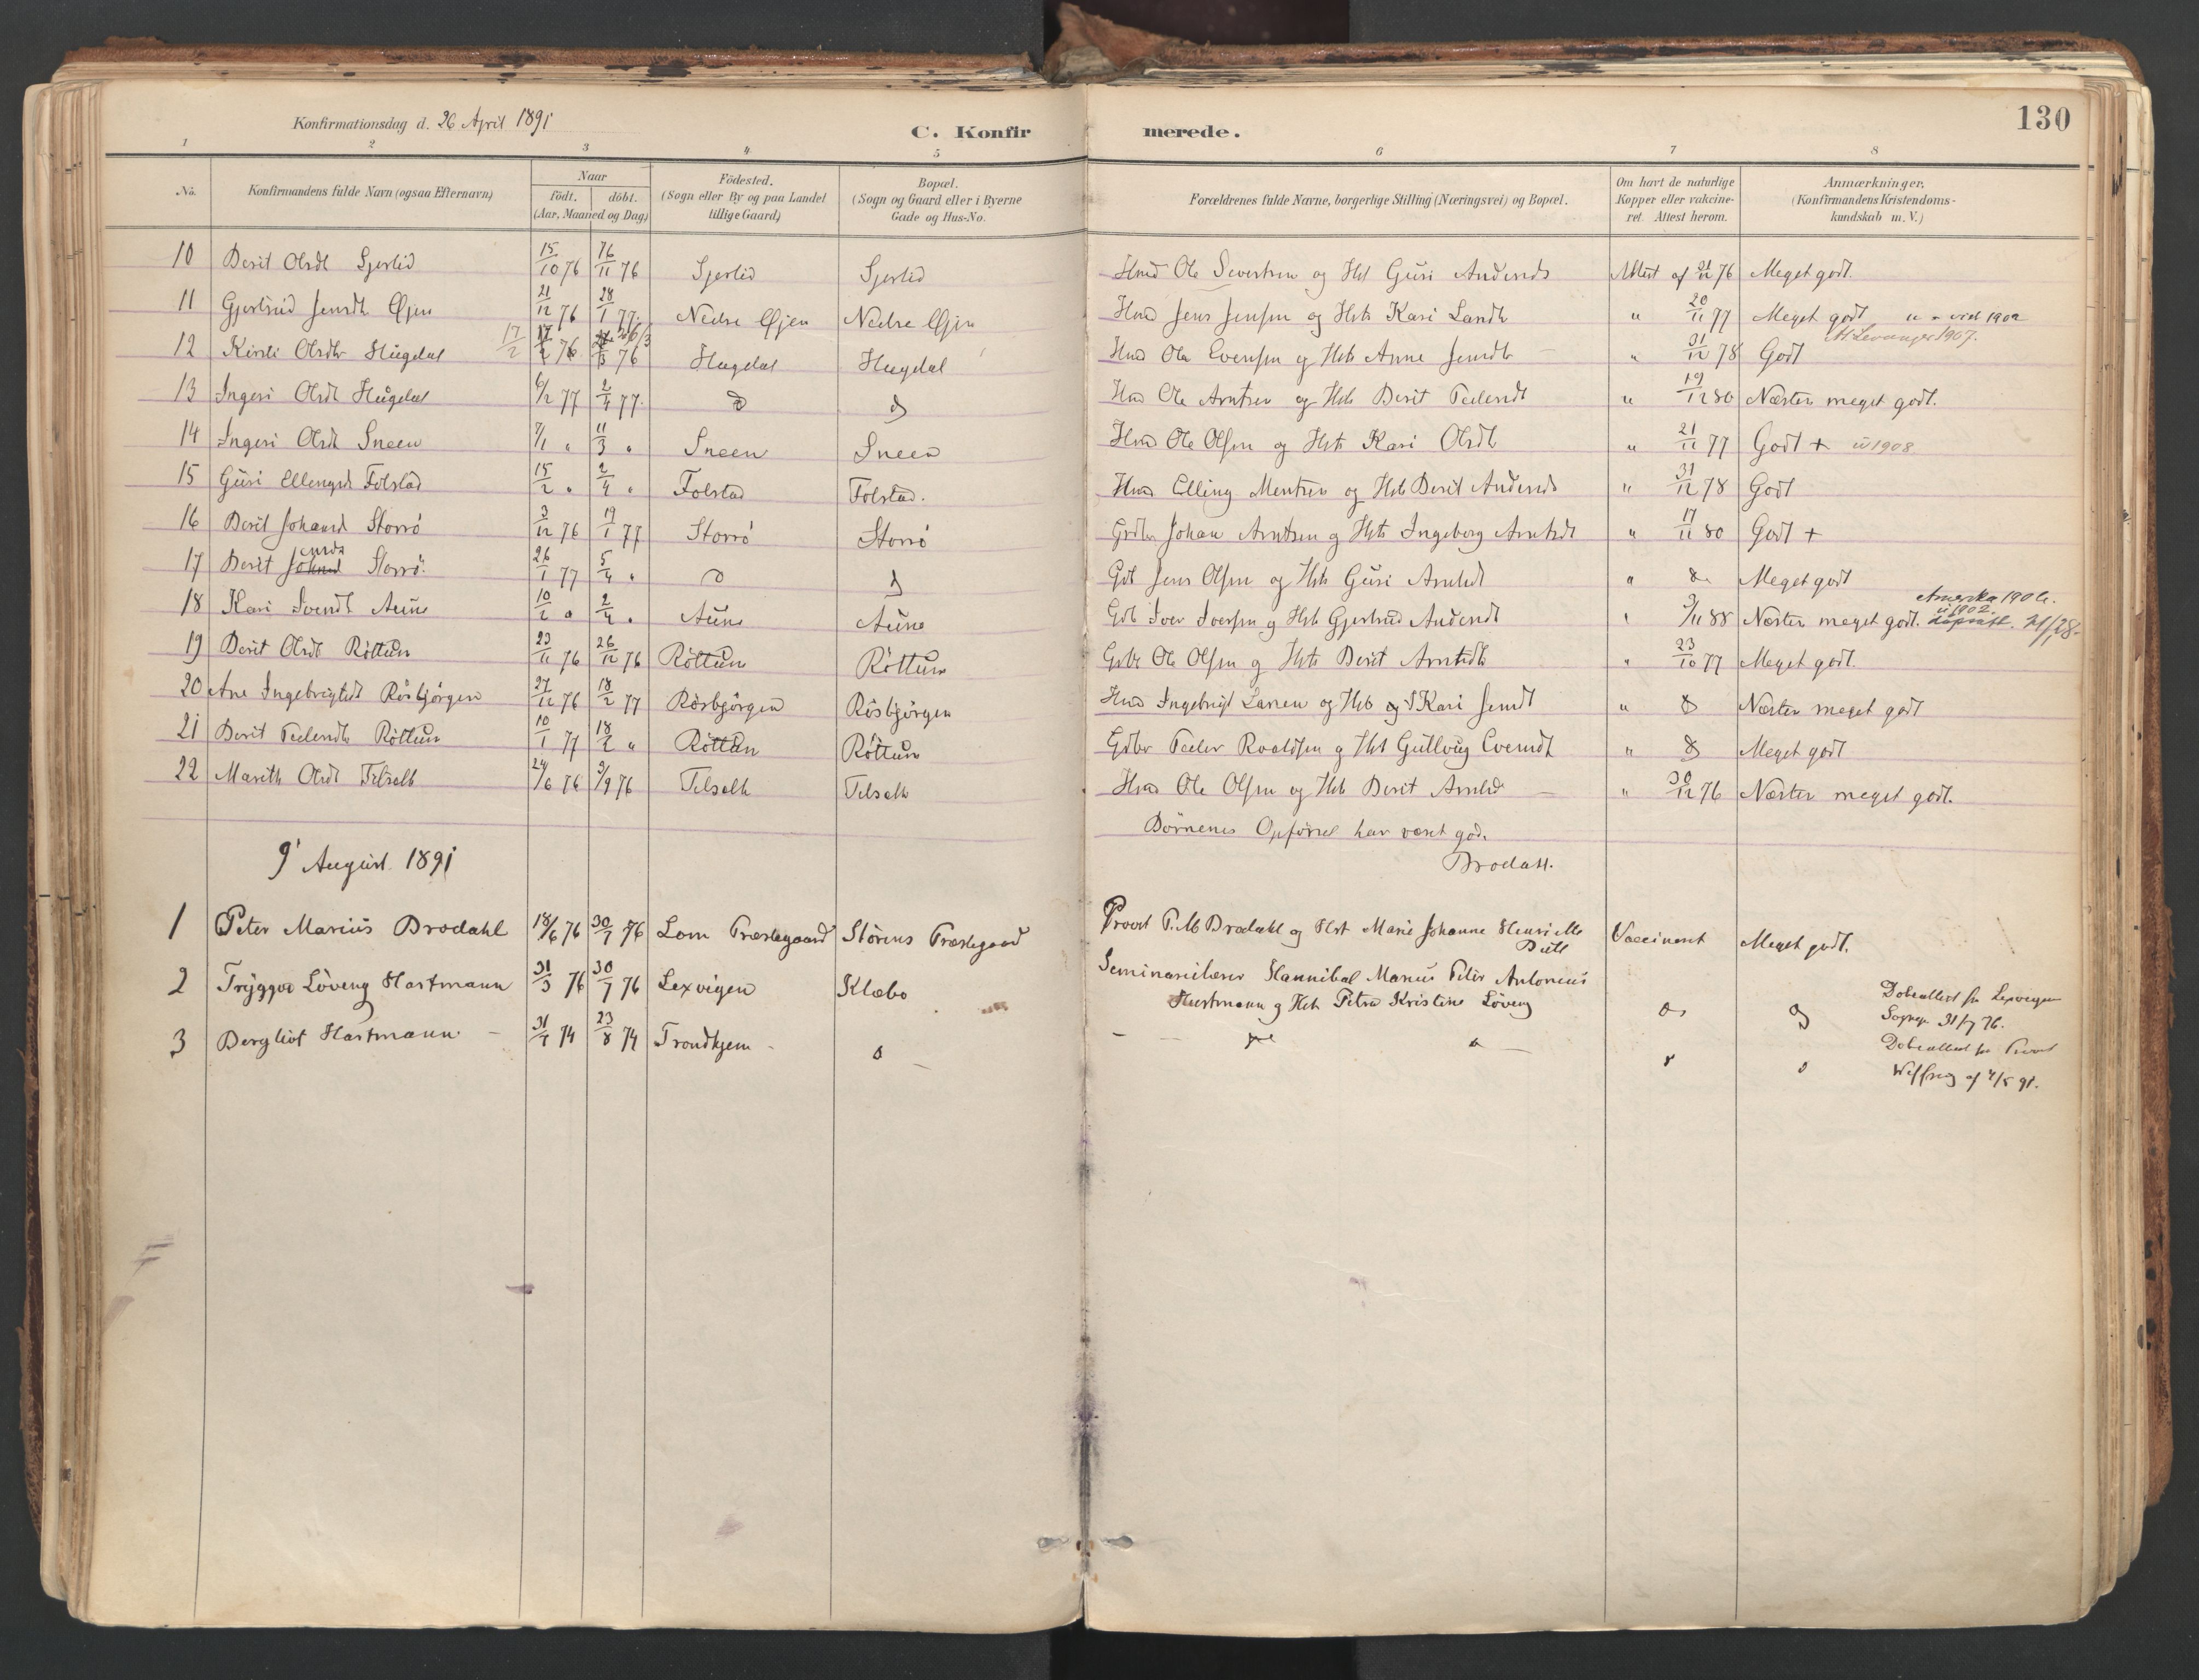 Konfirmationsdag d. 26 April 1891
C. Konfirmerede.
130
1 2 3 4 5 6 7 8
No.
Konfirmandens fulde Navn (ogsaa Efternavn)
Naar
födt. döbt.
(Aar, Maaned og Dag)
Födested.
(Sogn eller By og paa Landet
tillige Gaard)
Bopæl.
(Sogn og Gaard eller i Byerne
Gade og Hus-No.
Forældrenes fulde Navne, borgerlige Stilling (Næringsvei) og Bopæl.
Om havt de naturlige
Kopper eller vakcine-
ret. Attest herom.
Anmærkninger,
(Konfirmandens Kristendoms-
kundskab m. V.)
10 Berit Olsdt Sjerlid 15/10 76 16/11 76 Sjerlid Sjerlid Hmd Ole Sivertsen og Hst Guri Andersd Attest af 21/12 76 Meget godt.
11 Gjertrud Jensdt Øjen 21/12 76 28/1 77. Nedre Øjen Nedre Øjen Hmd Jens Jensen og Hst Kari Larsdt " 20/11 77 Meget godt 1902
12 Kirsti Olsdt Hugdal 17/2 76 26/3 76 Hugdal Hugdal Hmd Ole Evensen og Hst Anne Jensdt " 31/12 78 Godt Levanger 1907.
13 Ingeri Olsdt Hugdal 6/2 77 2/4 77. Hmd Ole Arntsen og Hst Berit Pedersdt " 19/12 80 Næsten meget godt.
14 Ingeri Olsdt Sneen 7/1 " 11/3 " Sneen Sneen Hmd Ole Olsen og Hst Kari Olsdt " 21/11 77 Godt + u 1908
15 Guri Ellengsdt Folstad 15/2 " 2/4 " Folstad Folstad. Hmd Elling Mentsen og Hst Berit Andersd " 31/12 78 Godt
16 Berit Johansd Storrö 3/12 76 19/1 77 Storrö Storrö Grdbr Johan Arntsen og Hst Ingeborg Arntsdt " 17/11 80 Godt +
17 Berit Jensdt Storrö 26/1 77 5/4 " Gdb Jens Olsen og Hst Guri Arntsdt " Meget godt
18 Kari Iversdt Aune 10/2 " 2/4 " Aune Aune Gdb Iver Iversen og Hst Gjertrud Andersdt " 9/11 88 Næsten meget godt. Amerika 1902.
19 Berit Olsdt Röttum 23/11 76 26/12 76 Röttum Röttum Gdbr Ole Olsen og Hst Berit Arntsdt " 23/10 77 Meget godt.
20 Ane Ingebrigtsdt Rösbjörgen 27/12 76 18/2 77 Rösbjörgen Rösbjörgen Hmd Ingebrigt Larsen og Hst Kari Jensdt " Næsten meget godt
21 Berit Pedersdt Röttum 10/1 77 18/2 " Röttum Röttum Gdbr Peder Roaldsen og Hst Gullaug Evensdt " Meget godt
22 Marith Olsdt Tilseth 24/6 76 3/9 76 Tilseth Tilseth Hmd Ole Olsen og Hst Berit Arntsd " 30/12 76 Næsten meget godt.
Börnenes Opförsel har været god.
Brodahl.
9' August 1891
1 Peter Marius Brodahl 18/6 76 30/7 76 Lom Præstegaard Störens Præstegaard Provst P. M Brodahl og Hst Marie Johanne Henriette Vaccineret Meget godt.
2 Tryggve Löveng Hartmann 31/3 76 30/7 76 Lexvigen Klæbo Seminarielærer Hannibal Marius Peter Antonius
Hartmann og Hst Petra Kristine Löveng Dobsattest fra Lexvigen
31/7 76.
3 Bergliot Hartmann 31/7 74 23/8 74 Trondhjem Dobsattest fra Provst
af 4/5 91.